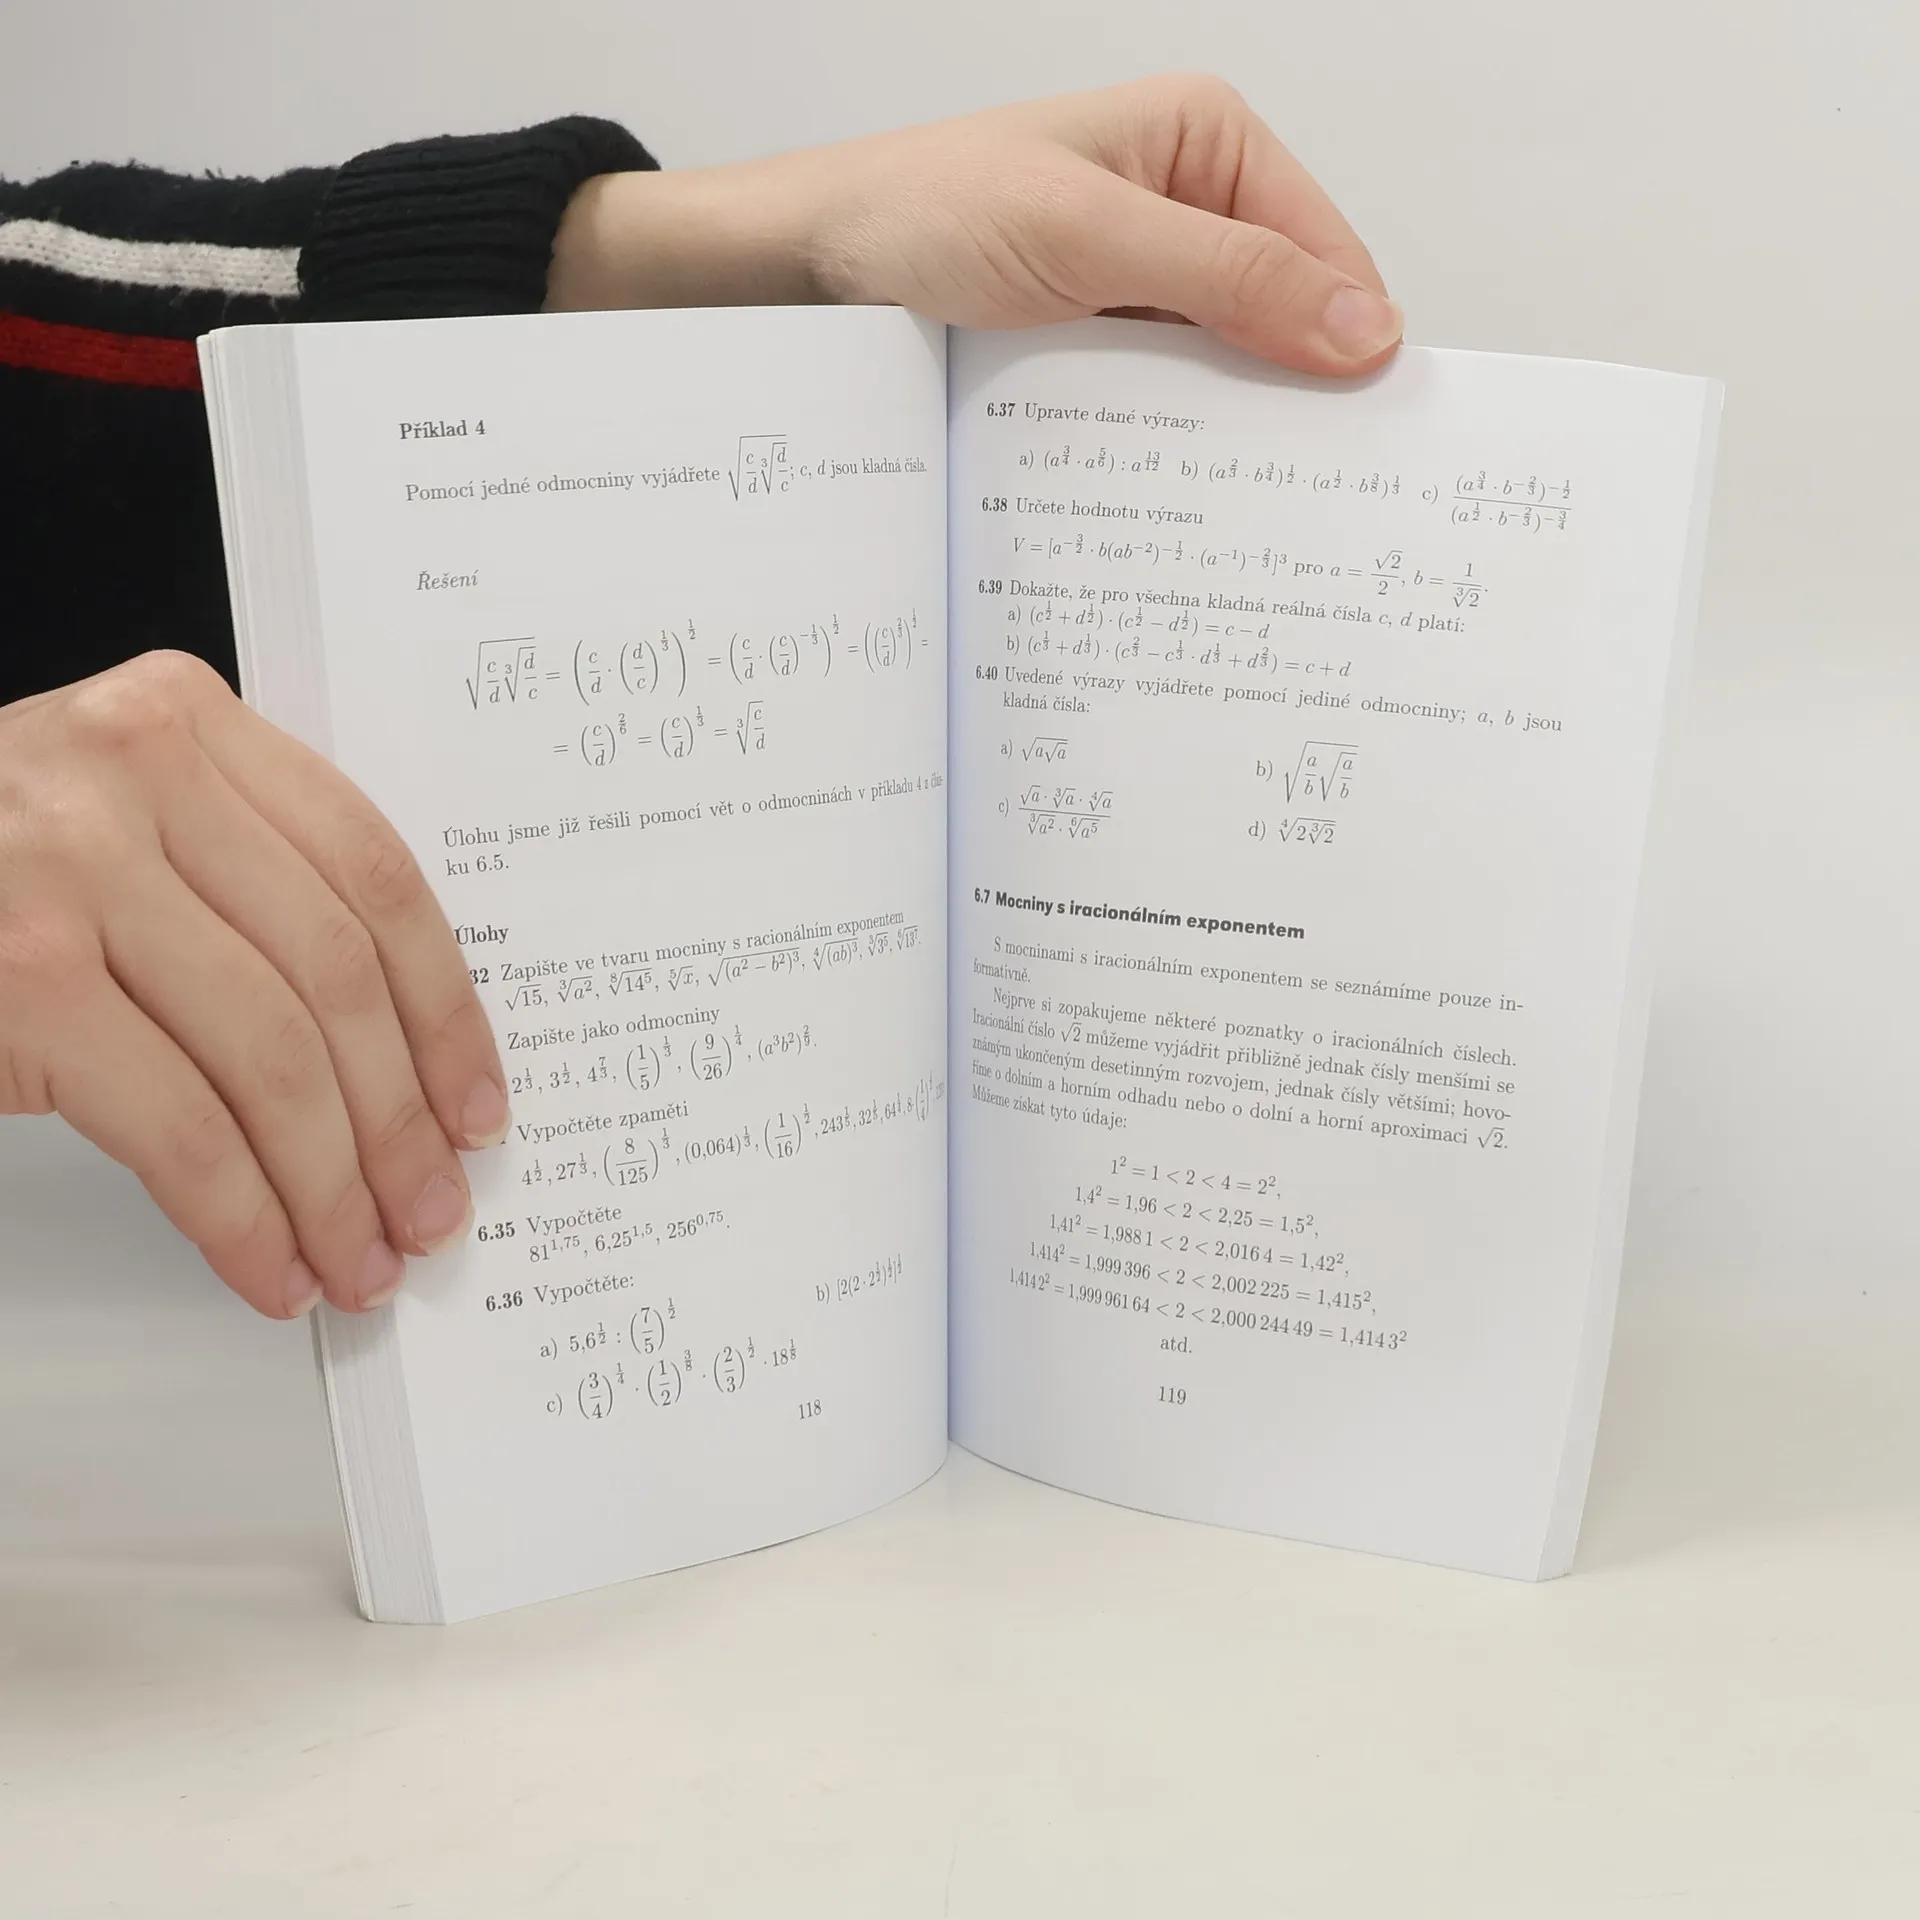 Příklad 4
Pomocí jedné odmocniny vyjádřete √(c/d ∛(d/c)); c, d jsou kladná čísla.
Řešení
√(c/d ∛(d/c)) = (c/d · (d/c)^(1/3))^(1/2) = (c/d · (c/d)^(−1/3))^(1/2) = ((c/d)^(2/3))^(1/2) =
= (c/d)^(2/6) = (c/d)^(1/3) = ∛(c/d)
Úlohu jsme již řešili pomocí vět o odmocninách v příkladu 4 z člán-
ku 6.5.
Úlohy
32 Zapište ve tvaru mocniny s racionálním exponentem
√15, ∛(a²), ⁸√(14⁵), ⁵√x, √((a² − b²)³), ⁴√((ab)³),
Zapište jako odmocniny
2^(1/3), 3^(1/2), 4^(7/3), (1/5)^(1/3), (9/26)^(1/4), (a³b²)^(2/9).
Vypočtěte zpaměti
4^(1/2), 27^(1/3), (8/125)^(1/3), (0,064)^(1/3), (1/16)^(1/2), 243^(1/5), 32^(1/5),
6.35 Vypočtěte
81^(1,75), 6,25^(1,5), 256^(0,75).
6.36 Vypočtěte:
a) 5,6^(1/2) : (7/5)^(1/2) b) [2(2 · 2^(1/2))^(1/2)]^(1/2)
c) (3/4)^(1/4) · (1/2)^(3/8) · (2/3)^(1/2) · 18^(1/8)
118
6.37 Upravte dané výrazy:
a) (a^(3/4) · a^(5/6)) : a^(13/12) b) (a^(2/3) · b^(3/4))^(1/2) · (a^(1/2) · b^(3/8))^(1/3) c) (a^(3/4) · b^(−2/3))^(−1/2) / (a^(1/2) · b^(−2/3))^(−3/4)
6.38 Určete hodnotu výrazu
V = [a^(−3/2) · b(ab^(−2))^(−1/2) · (a^(−1))^(−2/3)]³ pro a = √2/2, b = 1/∛2.
6.39 Dokažte, že pro všechna kladná reálná čísla c, d platí:
a) (c^(1/2) + d^(1/2)) · (c^(1/2) − d^(1/2)) = c − d
b) (c^(1/3) + d^(1/3)) · (c^(2/3) − c^(1/3) · d^(1/3) + d^(2/3)) = c + d
6.40 Uvedené výrazy vyjádřete pomocí jediné odmocniny; a, b jsou
kladná čísla:
a) √(a√a) b) √(a/b √(a/b))
c) (√a · ∛a · ⁴√a) / (∛(a²) · ⁶√(a⁵)) d) ⁴√(2∛2)
6.7 Mocniny s iracionálním exponentem
S mocninami s iracionálním exponentem se seznámíme pouze in-
formativně.
Nejprve si zopakujeme některé poznatky o iracionálních číslech.
Iracionální číslo √2 můžeme vyjádřit přibližně jednak čísly menšími se
známým ukončeným desetinným rozvojem, jednak čísly většími; hovo-
říme o dolním a horním odhadu nebo o dolní a horní aproximaci √2.
Můžeme získat tyto údaje:
1² = 1 < 2 < 4 = 2²,
1,4² = 1,96 < 2 < 2,25 = 1,5²,
1,41² = 1,988 1 < 2 < 2,016 4 = 1,42²,
1,414² = 1,999 396 < 2 < 2,002 225 = 1,415²,
1,414 2² = 1,999 961 64 < 2 < 2,000 244 49 = 1,414 3²
atd.
119